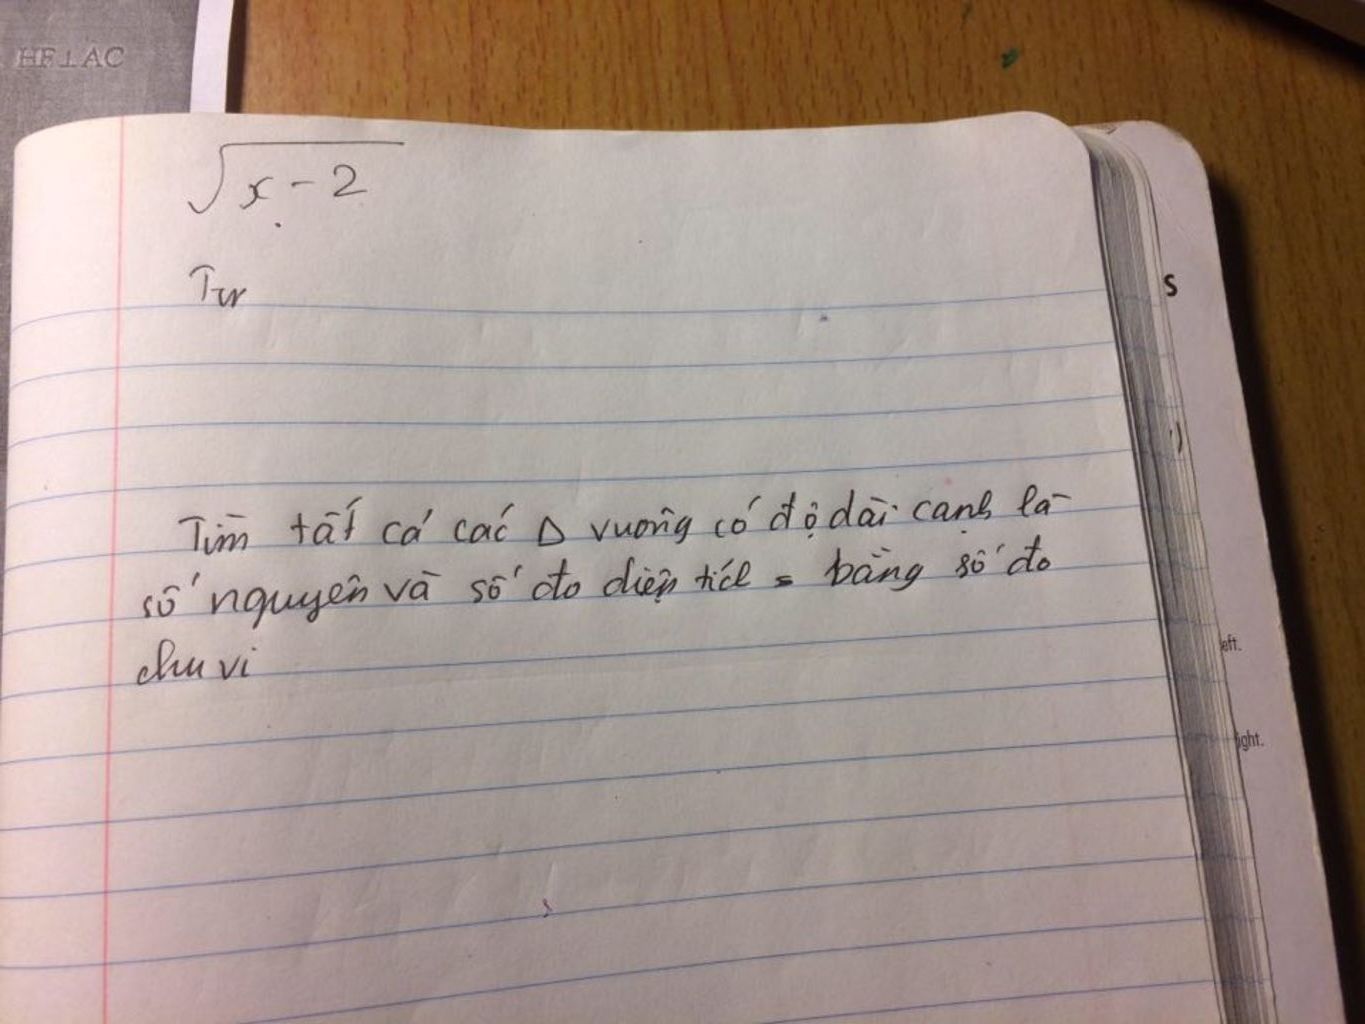 HF⊥AC
√x-2
Tư
S
Tìm tất cả các Δ vuông có độ dài cạnh là
số nguyên và số đo diện tích = bằng số đo
chu vi
eft.
ight.